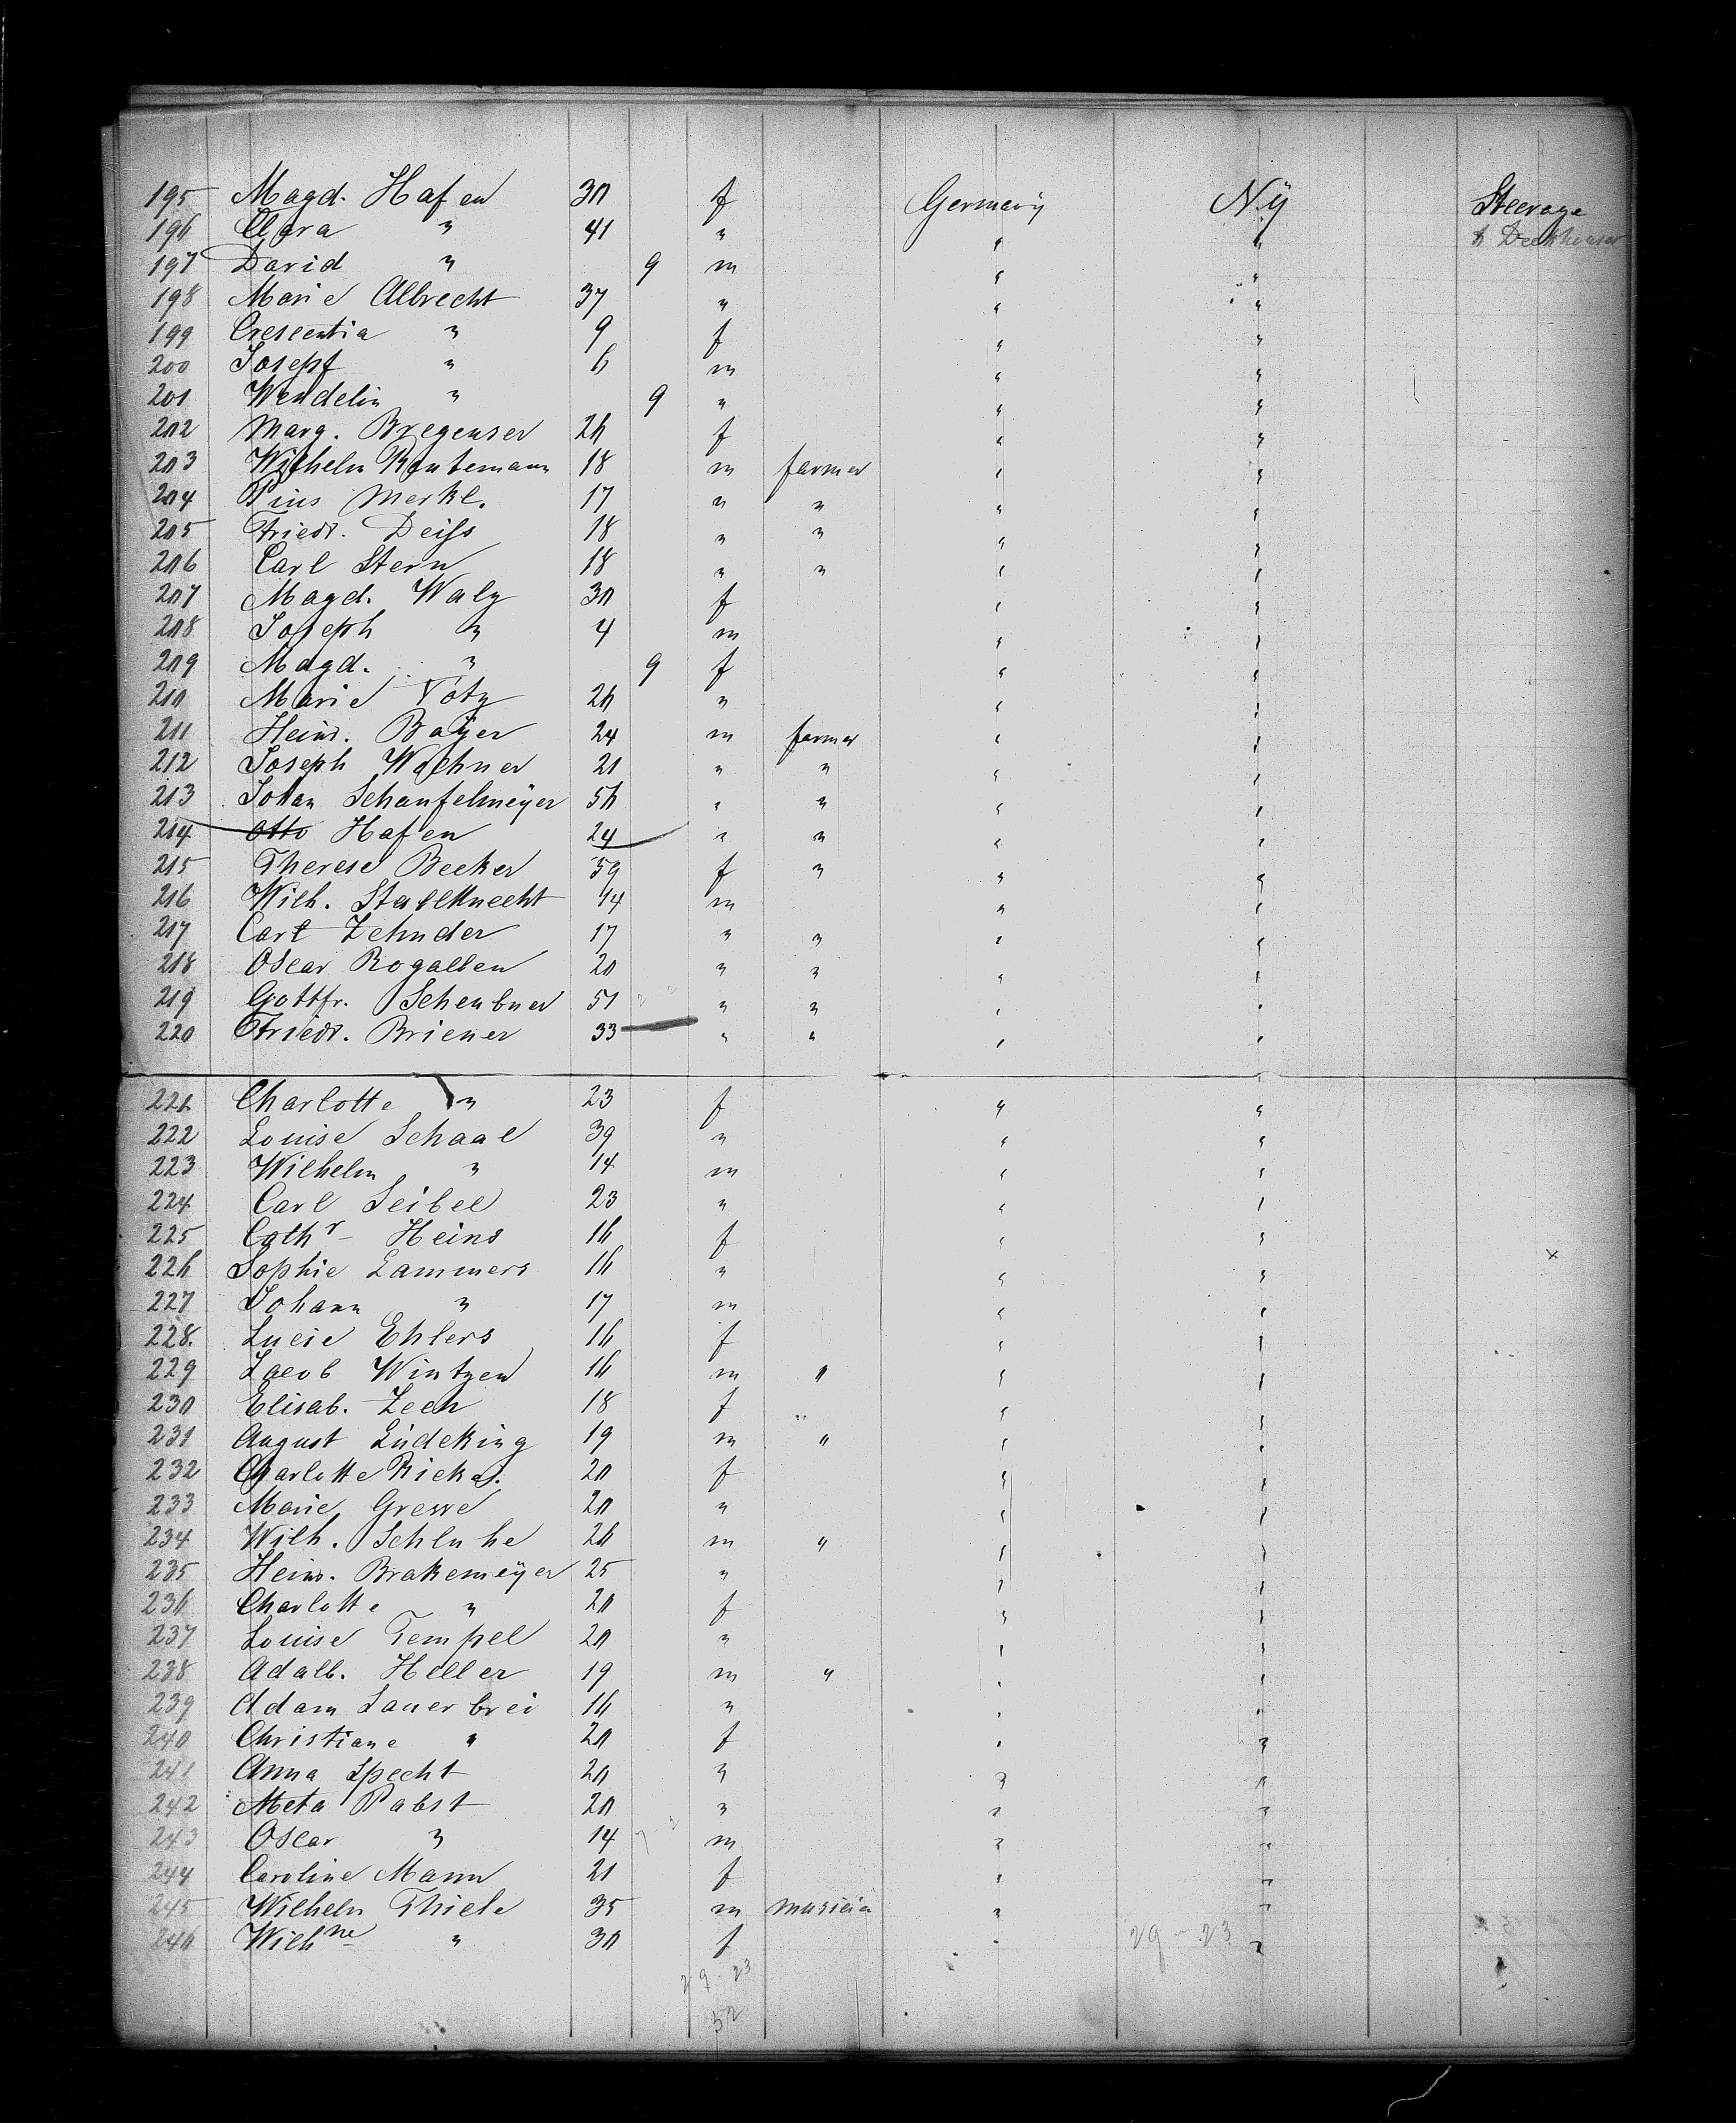 195 Magd. Hafen 30 f Germany NY Steerage
196 Clara " 41 " " " & Deckhouse
197 David " 9 m " "
198 Marie Albrecht 37 " " "
199 Crescentia " 9 f " "
200 Josepf " 6 m " "
201 Wendelin " 9 " " "
202 Marg. Bregenser 26 f " "
203 Wilhelm Rautemann 18 m farmer " "
204 Pius Merkl. 17 " " " "
205 Friedr. Deiss 18 " " " "
206 Carl Stern 18 " " " "
207 Magd. Walz 30 f " "
208 Joseph " 4 m " "
209 Magd. " 9 f " "
210 Marie Votz 26 " " "
211 Heinr. Bayer 24 m farmer " "
212 Joseph Wachner 21 " " " "
213 Johan Schaufelmeÿer 56 " " " "
214 Otto Hafen 24 " " " "
215 Therese Becker 59 f " " "
216 Wilh. Stallknecht 14 m " "
217 Carl Zehnder 17 " " " "
218 Oscar Rogallen 20 " " " "
219 Gottfr. Scheubner 51 " " " "
220 Friedr. Briener 33 " " " "
221 Charlotte " 23 f " "
222 Louise Schaal 39 " " "
223 Wilhelm " 14 m " "
224 Carl Seibel 23 " " "
225 Cathr Heins 16 f " "
226 Sophie Lammers 16 " " "
227 Johann " 17 m " "
228. Lucie Ehlers 16 f " "
229 Jacob Wintzen 16 m " " "
230 Elisab. Zech 18 f " "
231 August Lüdeking 19 m " " "
232 Charlotte Rieke. 20 f " "
233 Marie Grewe 20 " " "
234 Wilh. Schluhe 26 m " " "
235 Heinr. Brakemeÿer 25 " " "
236 Charlotte " 20 f " "
237 Louise Tempel 20 " " "
238 Adalb. Heller 19 m " " "
239 Adam Sauerbrei 16 " " "
240 Christiane " 20 f " "
241 Anna Specht 20 " " "
242 Meta Pabst 20 " " "
243 Oscar " 14 m " "
244 Caroline Mann 21 f " "
245 Wilhelm Thiele 35 m musicia " "
246 Wilhne " 30 f " 29 - 23 "
29 - 23
52